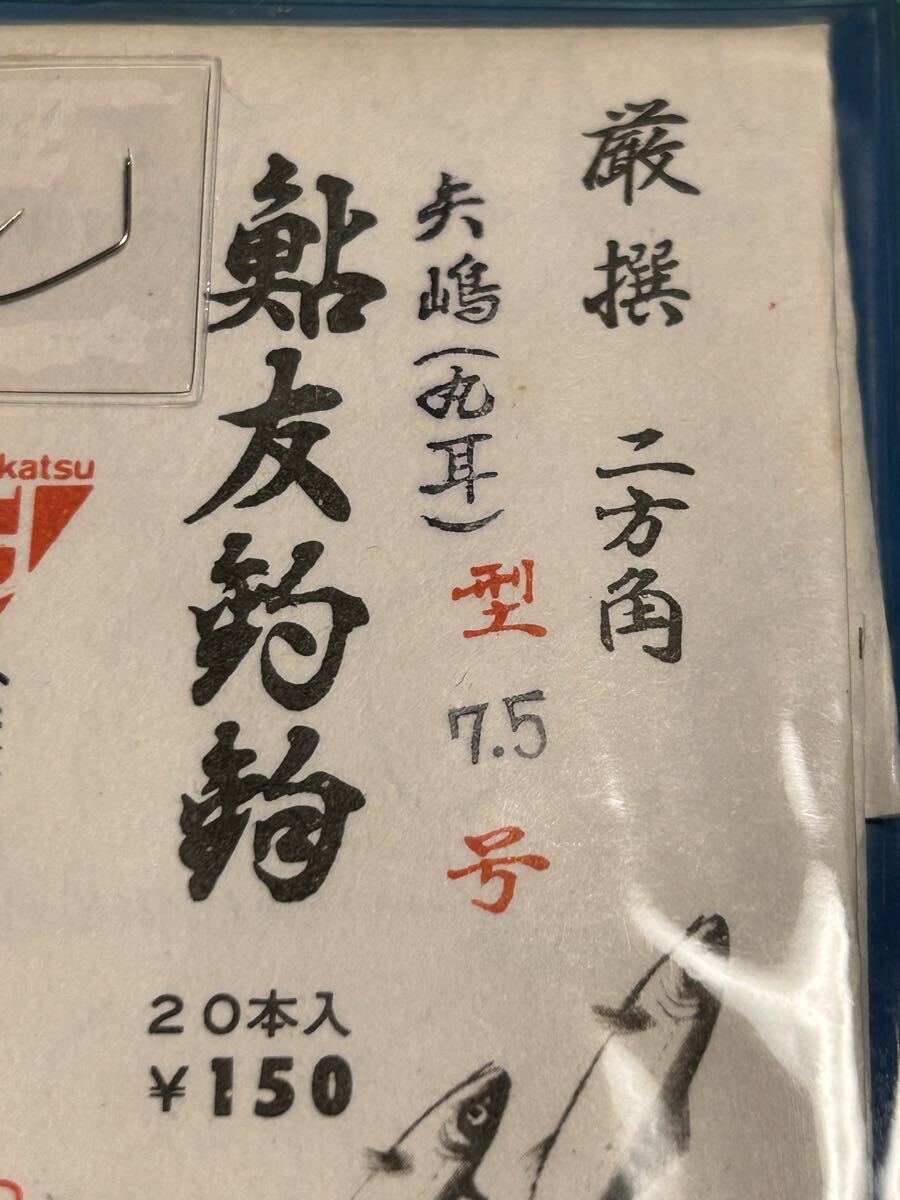 厳撰 二方角
矢嶋(丸耳)型 7.5 号
鮎友釣鈎
20本入
¥150
katsu